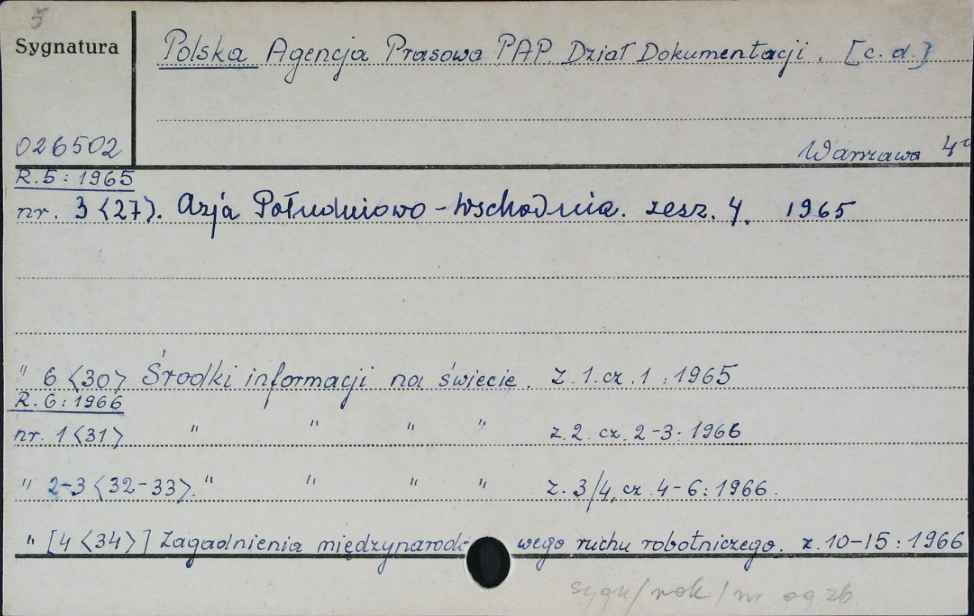 5
Sygnatura
Polska Agencja Prasowa PAP. Dział Dokumentacji. [c.d.]
026502
Warszawa 4°
R.5:1965
nr. 3 <27>. Azja Południowo-Wschodnia. zesz. 4. 1965
" 6 <30> Środki informacji na świecie. Z.1.cz.1:1965
R.6:1966
nr. 1 <31> " " " " z.2. cz. 2-3. 1966
" 2-3 <32-33>. " " " " z. 3/4, cz 4-6:1966.
" [4 <34>] Zagadnienia międzynarodowego ruchu robotniczego. z.10-15:1966
sygn/rok/nr og zb